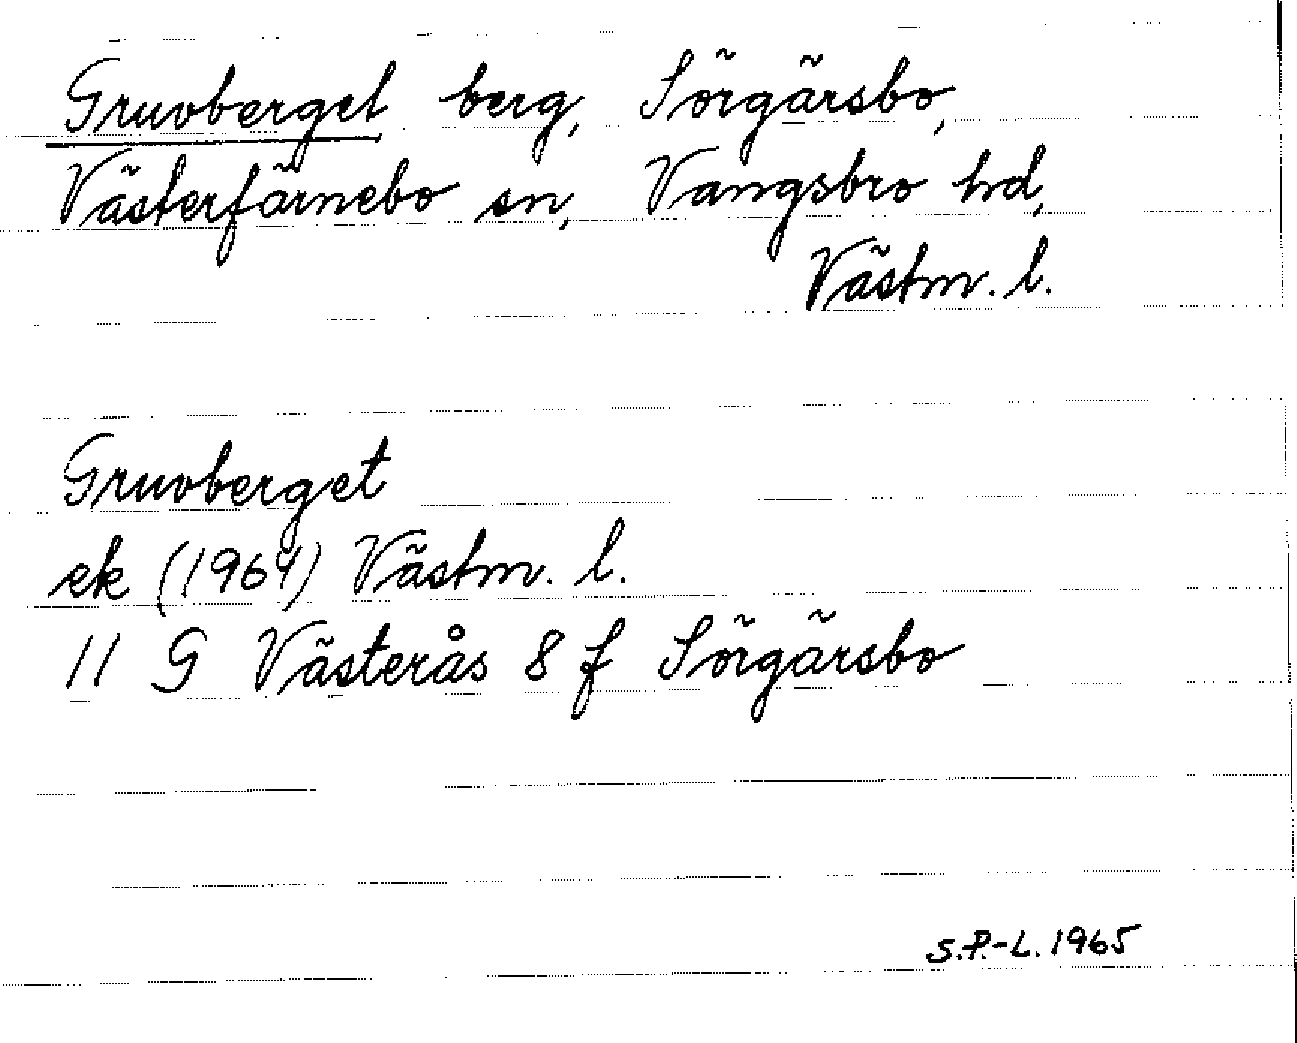 Gruvberget berg, Sörgärsbo,
Västerfärnebo sn, Vangsbro hd,
Västm. l.
Gruvberget
ek (1964) Västm. l.
11 G Västerås 8 f Sörgärsbo
S.P.-L. 1965